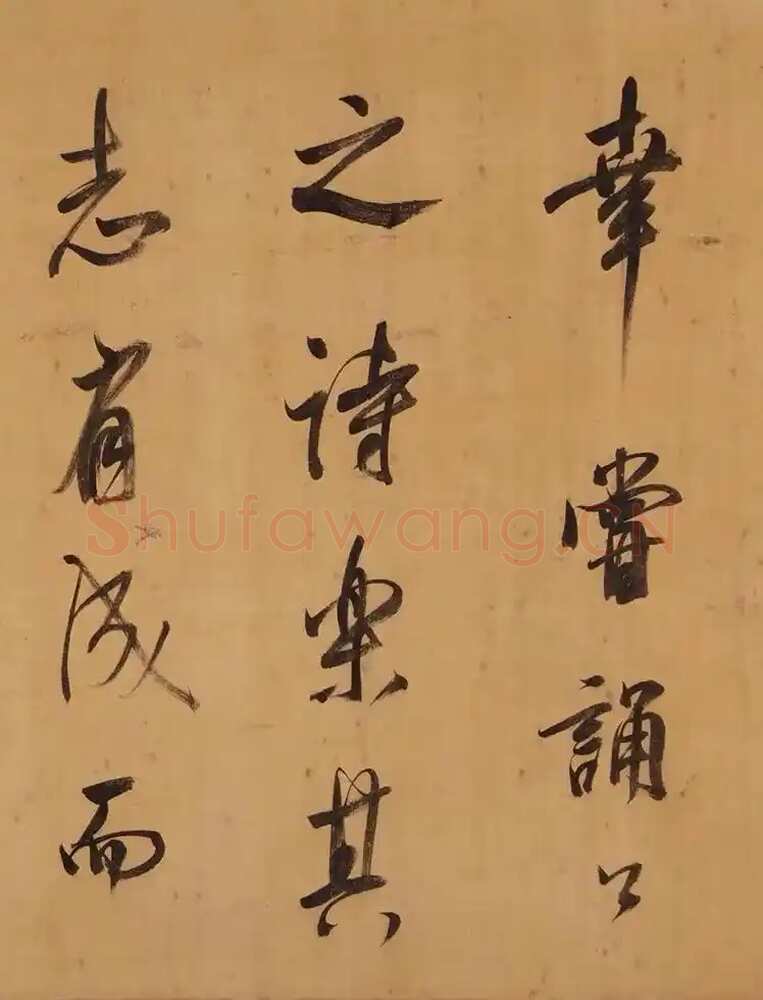 幸嘗誦公
之詩樂其
志有成而
Shufawang.CN